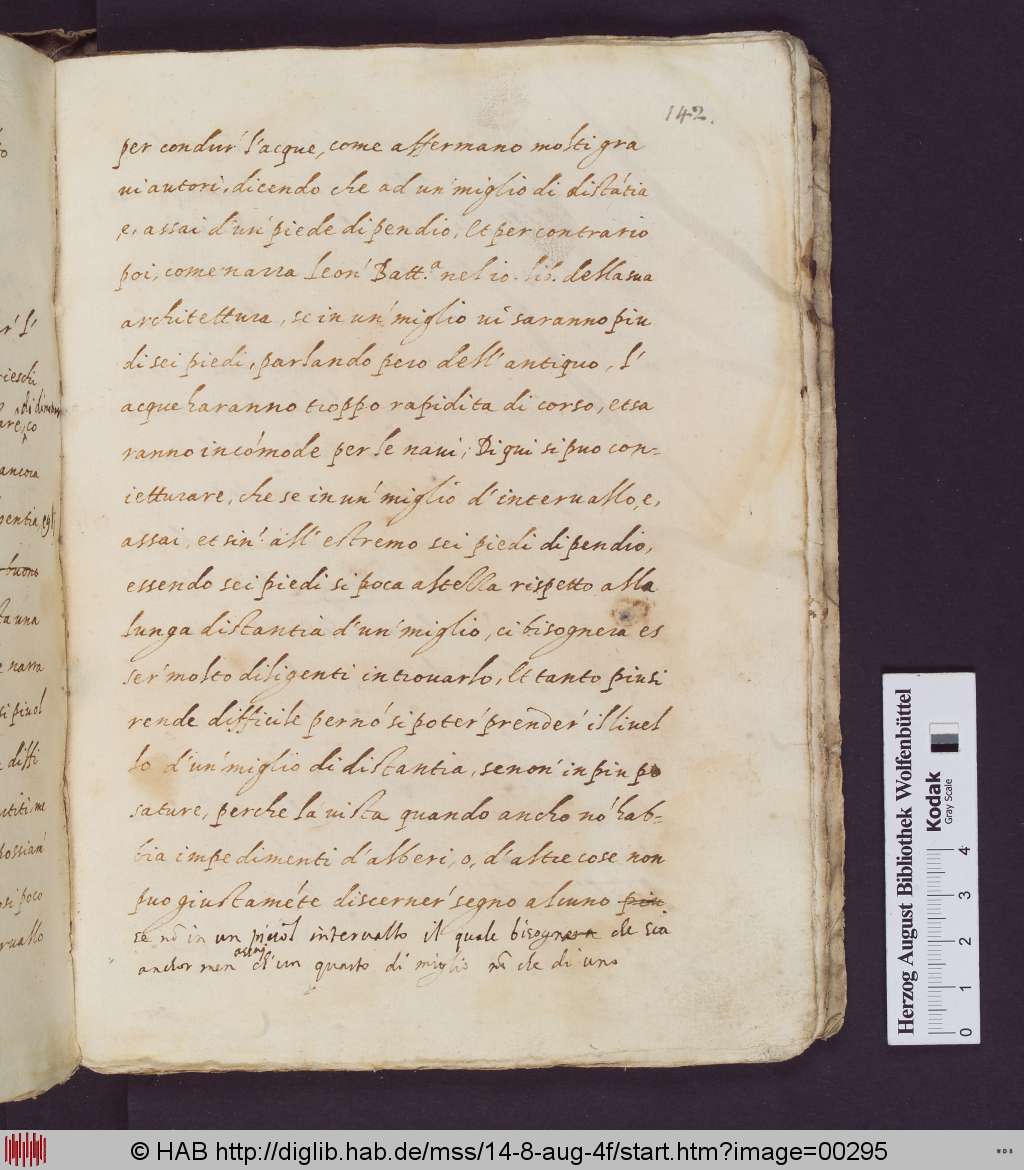 142.
per condur' l'acque, come affermano molti gra
ui autori, dicendo che ad un' miglio di distātia
e, assai d'un' piede di pendio, Et per contrario
poi, come narra Leon' Batt.ª nel 10. lib. della sua
architettura, se in un' miglio ui saranno piu
di sei piedi, parlando pero dell' antiquo, l'
acque haranno troppo rapidita di corso, et sa
ranno incōmode per le naui; Di qui si puo con-
ietturare, che se in un' miglio d'interuallo, e,
assai, et sin' all' estremo sei piedi di pendio,
essendo sei piedi si poca altezza rispetto alla
lunga distantia d'un' miglio, ci bisognera es
ser' molto diligenti in trouarlo, Et tanto piu si
rende difficile per nō si poter' prender' il liuel
lo d'un' miglio di distantia, se non' in piu po
sature, perche la uista quando ancho nō hab-
bia impedimenti d'alberi, o, d'altre cose non
puo giustamēte discerner' segno alcuno piu
se nō in un piciol interuallo il quale bisognera che sia
anchor men assaj d'un quarto di miglio nō che di uno
r' l'
rieschi
di
co
ancora
buono
ta una
e narra
si piuol
diffi
ossiam'
si poco
ruallo
Herzog August Bibliothek Wolfenbüttel
Kodak
Gray Scale
0 1 2 3 4
© HAB http://diglib.hab.de/mss/14-8-aug-4f/start.htm?image=00295